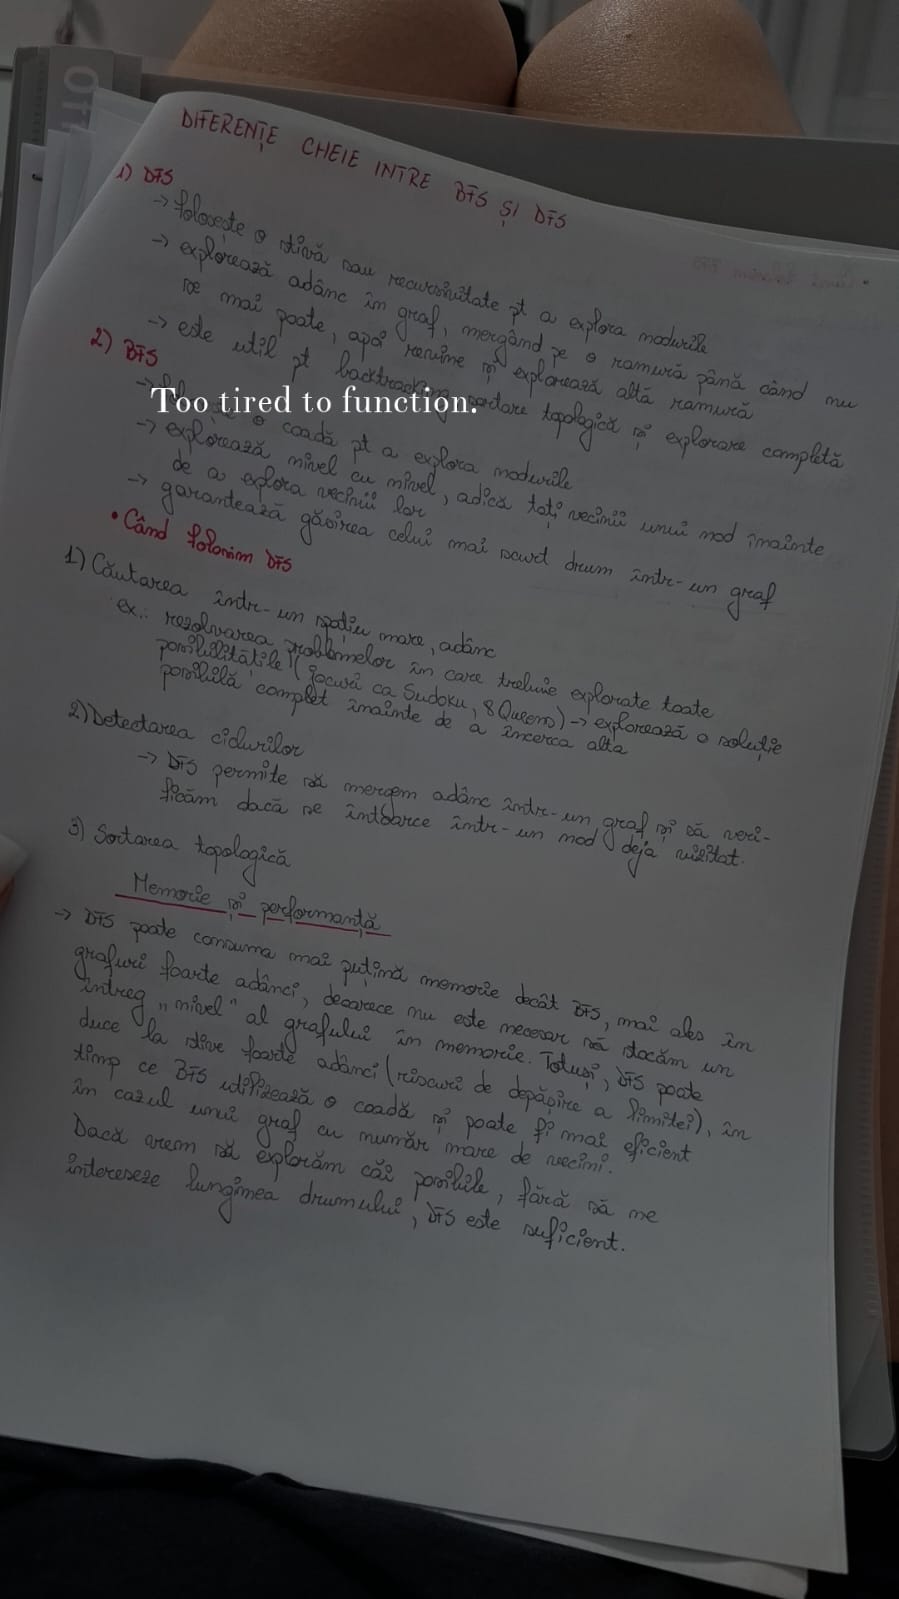 DIFERENȚE CHEIE INTRE BFS ȘI DFS
1) DFS
→ folosește o stivă sau recursivitate pt a explora nodurile
→ explorează adânc în graf, mergând pe o ramură până când nu
se mai poate, apoi revine și explorează altă ramură
→ este util pt backtracking, sortare topologică și explorare completă
2) BFS
Too tired to function.
→ o coadă pt a explora nodurile
→ explorează nivel cu nivel, adică toți vecinii unui nod înainte
de a explora vecinii lor
→ garantează găsirea celui mai scurt drum într-un graf
• Când folosim DFS
1) Căutarea într-un spațiu mare, adânc
ex.: rezolvarea problemelor în care trebuie explorate toate
posibilitățile (jocuri ca Sudoku, 8 Queens) → explorează o soluție
posibilă complet înainte de a încerca alta
2) Detectarea ciclurilor
→ DFS permite să mergem adânc într-un graf și să veri-
ficăm dacă se întoarce într-un nod deja vizitat.
3) Sortarea topologică
Memorie și performanță
→ DFS poate consuma mai puțină memorie decât BFS, mai ales în
grafuri foarte adânci, deoarece nu este necesar să stocăm un
întreg „nivel" al grafului în memorie. Totuși, DFS poate
duce la stive foarte adânci (riscuri de depășire a limitei), în
timp ce BFS utilizează o coadă și poate fi mai eficient
în cazul unui graf cu număr mare de vecini.
Dacă vrem să explorăm căi posibile, fără să ne
intereseze lungimea drumului, DFS este suficient.